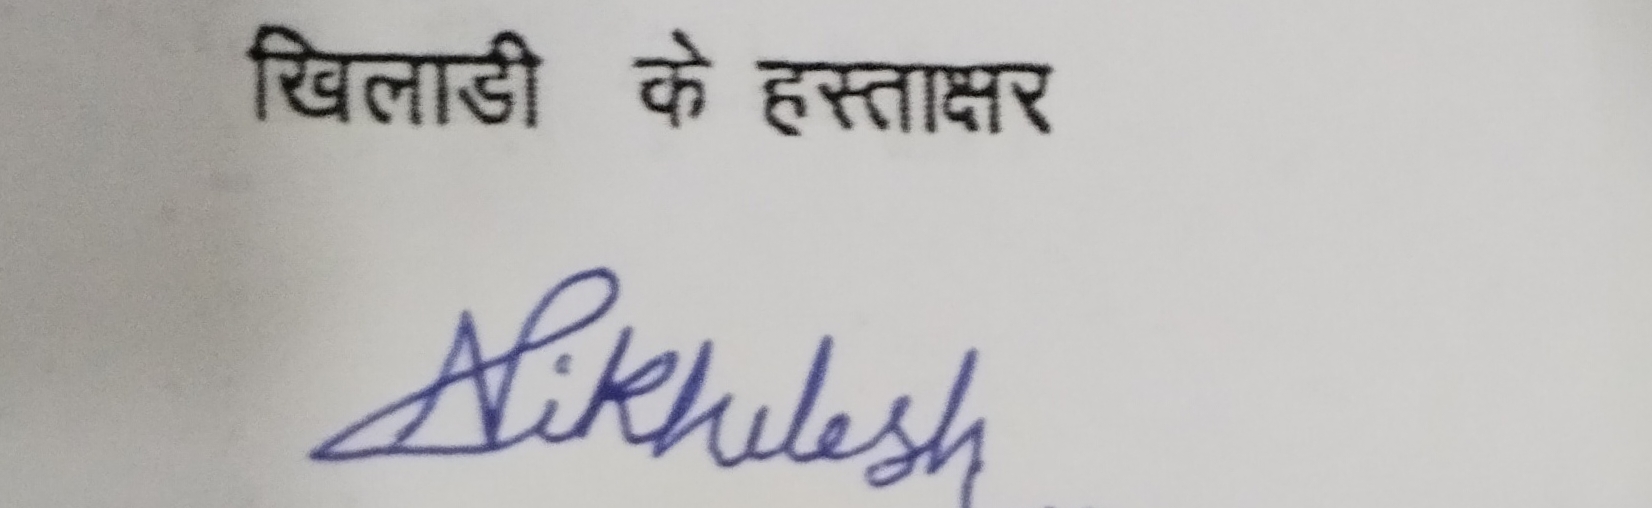 खिलाडी के हस्ताक्षर
Nikhilesh